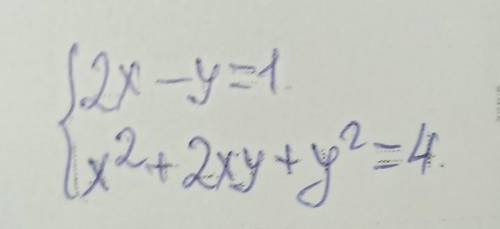 2x - y = 1.
x² + 2xy + y² = 4.